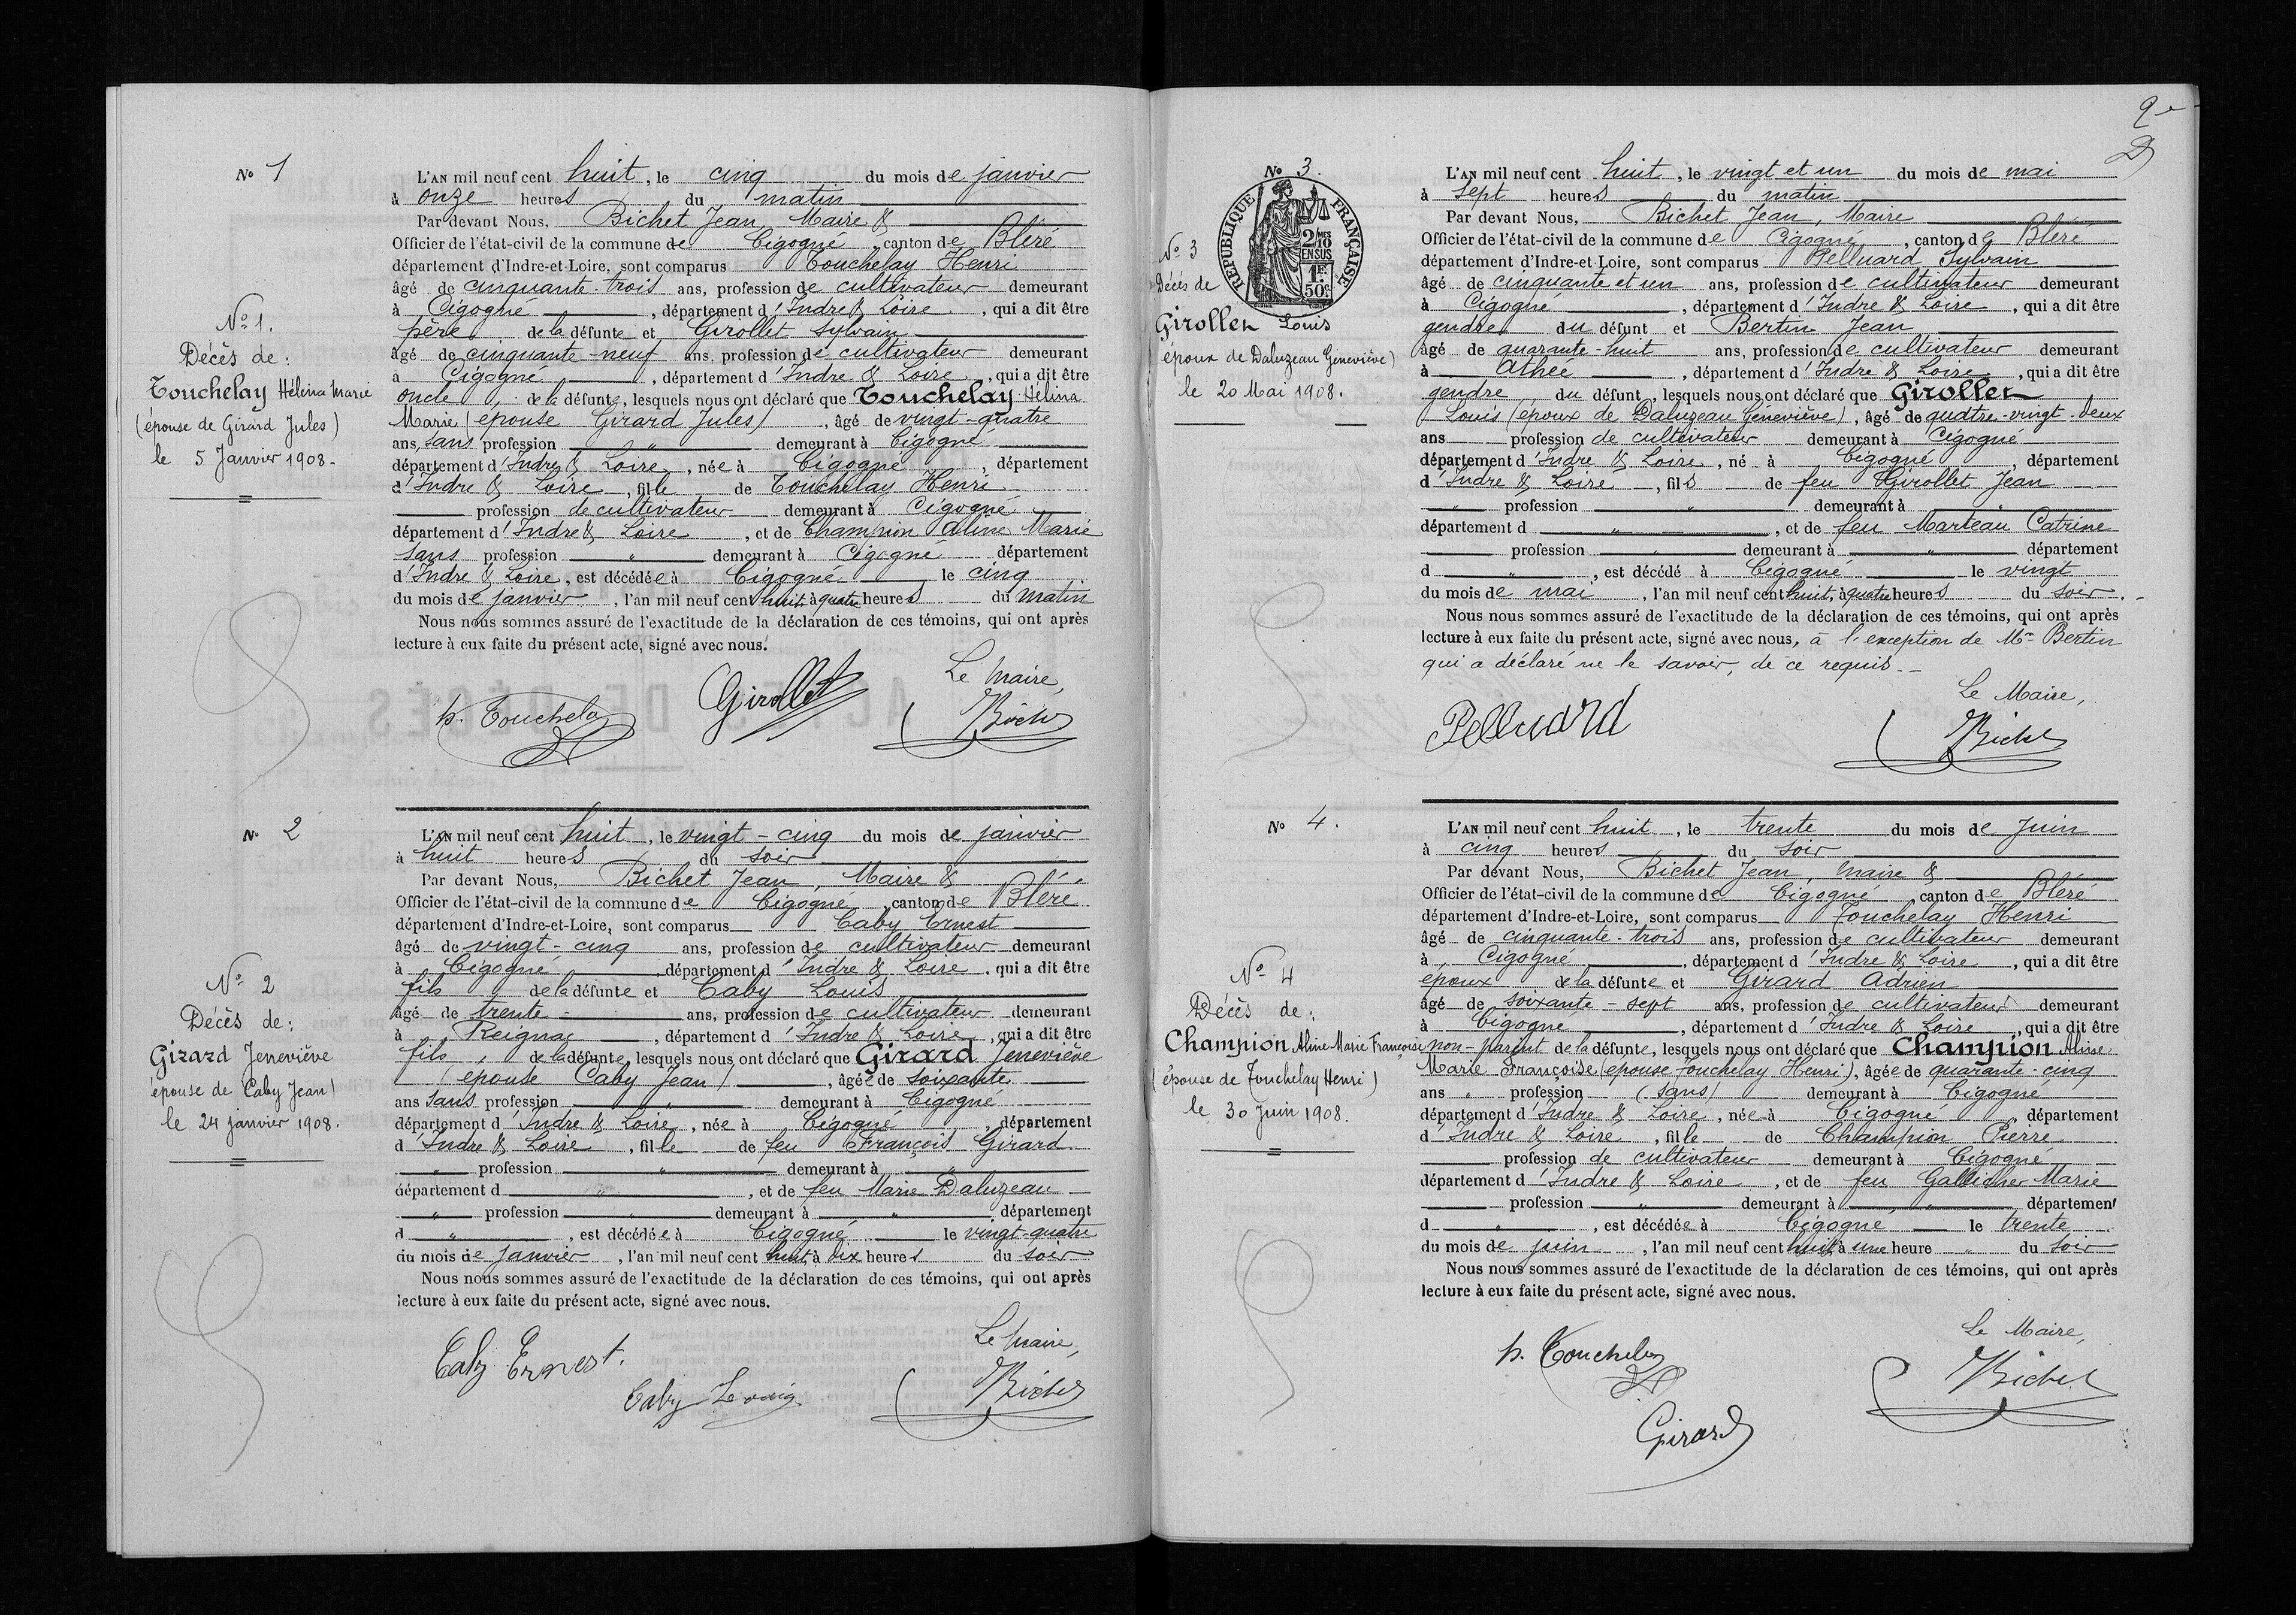 No 1
No 1.
Décès de :
Touchelay Hélina Marie
(épouse de Girard Jules)
le 5 Janvier 1908.
L'AN mil neuf cent huit, le cinq du mois de janvier
à onze heures du matin
Par devant Nous, Bichet Jean Maire &
Officier de l'état-civil de la commune de Cigogné, canton de Bléré
département d'Indre-et-Loire, sont comparus Touchelay Henri
âgé de cinquante-trois ans, profession de cultivateur demeurant
à Cigogné, département d'Indre & Loire, qui a dit être
père de la défunte et Girollet Sylvain
âgé de cinquante-neuf ans, profession de cultivateur demeurant
à Cigogné, département d'Indre & Loire, qui a dit être
oncle de la défunte, lesquels nous ont déclaré que Touchelay Hélina
Marie (épouse Girard Jules), âgé de vingt-quatre
ans, sans profession " demeurant à Cigogné
département d'Indre & Loire, née à Cigogné, département
d'Indre & Loire, fille de Touchelay Henri
profession de cultivateur demeurant à Cigogné
département d'Indre & Loire, et de Champion Aline Marie
sans profession " demeurant à Cigogné département
d'Indre & Loire, est décédée à Cigogné le cinq
du mois de janvier, l'an mil neuf cent huit, à quatre heures du matin
Nous nous sommes assuré de l'exactitude de la déclaration de ces témoins, qui ont après
lecture à eux faite du présent acte, signé avec nous.
Le Maire,
h. Touchelay Girollet Bichet
No 2
No 2
Décès de :
Girard Jeneviève
épouse de Caby Jean)
le 24 janvier 1908.
L'AN mil neuf cent huit, le vingt-cinq du mois de janvier
à huit heures du soir
Par devant Nous, Bichet Jean, Maire &
Officier de l'état-civil de la commune de Cigogné, canton de Bléré
département d'Indre-et-Loire, sont comparus Caby Ernest
âgé de vingt-cinq ans, profession de cultivateur demeurant
à Cigogné, département d'Indre & Loire, qui a dit être
fils de la défunte et Caby Louis
âgé de trente ans, profession de cultivateur demeurant
à Reignac, département d'Indre & Loire, qui a dit être
fils, de la défunte, lesquels nous ont déclaré que Girard Jeneviève
(épouse Caby Jean), âgée de soixante
ans sans profession " demeurant à Cigogné
département d'Indre & Loire, née à Cigogné, département
d'Indre & Loire, fille de feu François Girard
" profession " demeurant à "
département d ", et de feu Marie Daluzeau
" profession " demeurant à " département
d ", est décédée à Cigogné le vingt-quatre
du mois de janvier, l'an mil neuf cent huit, à dix heures du soir
Nous nous sommes assuré de l'exactitude de la déclaration de ces témoins, qui ont après
lecture à eux faite du présent acte, signé avec nous.
Le Maire,
Caby Ernest. Caby Louis Bichet
2e
No 3.
REPUBLIQUE FRANÇAISE
2/10MES
EN SUS
1F.
50c
No 3
Décès de
Girollet Louis
époux de Daluzeau Geneviève)
le 20 Mai 1908.
L'AN mil neuf cent huit, le vingt et un du mois de mai
à sept heures du matin
Par devant Nous, Bichet Jean, Maire
Officier de l'état-civil de la commune de Cigogné, canton de Bléré
département d'Indre-et-Loire, sont comparus Pelluard Sylvain
âgé de cinquante et un ans, profession de cultivateur demeurant
à Cigogné, département d'Indre & Loire, qui a dit être
gendre du défunt et Bertin Jean
âgé de quarante-huit ans, profession de cultivateur demeurant
à Athée, département d'Indre & Loire, qui a dit être
gendre du défunt, lesquels nous ont déclaré que Girollet
Louis (époux de Daluzeau Géneviève), âgé de quatre-vingt-deux
ans profession de cultivateur demeurant à Cigogné
département d'Indre & Loire, né à Cigogné, département
d'Indre & Loire, fils de feu Girollet Jean
" profession " demeurant à "
département d ", et de feu Marteau Catrine
profession " demeurant à " département
d ", est décédé à Cigogné le vingt
du mois de mai, l'an mil neuf cent huit, à quatre heures du soir.
Nous nous sommes assuré de l'exactitude de la déclaration de ces témoins, qui ont après
lecture à eux faite du présent acte, signé avec nous, à l'exception de Mr Bertin
qui a déclaré ne le savoir, de ce requis.
Le Maire,
Pelluard Bichet
No 4.
No 4
Décès de :
Champion Aline Marie Françoise
(épouse de Touchelay Henri)
le 30 Juin 1908.
L'AN mil neuf cent huit, le trente du mois de Juin
à cinq heures du soir
Par devant Nous, Bichet Jean, Maire &
Officier de l'état-civil de la commune de Cigogné canton de Bléré
département d'Indre-et-Loire, sont comparus Touchelay Henri
âgé de cinquante-trois ans, profession de cultivateur demeurant
à Cigogné, département d'Indre & Loire, qui a dit être
époux de la défunte et Girard Adrien
âgé de soixante-sept ans, profession de cultivateur demeurant
à Cigogné, département d'Indre & Loire, qui a dit être
non-parent de la défunte, lesquels nous ont déclaré que Champion Aline
Marie Françoise (épouse Touchelay Henri), âgée de quarante-cinq
ans " profession (sans) demeurant à Cigogné
département d'Indre & Loire, née à Cigogné, département
d'Indre & Loire, fille de Champion Pierre
profession de cultivateur demeurant à Cigogné
département d'Indre & Loire, et de feu Gallicher Marie
profession " demeurant à " département
d ", est décédée à Cigogné le trente
du mois de juin, l'an mil neuf cent huit, à une heure " du soir
Nous nous sommes assuré de l'exactitude de la déclaration de ces témoins, qui ont après
lecture à eux faite du présent acte, signé avec nous.
Le Maire,
h. Touchelay Bichet
Girard